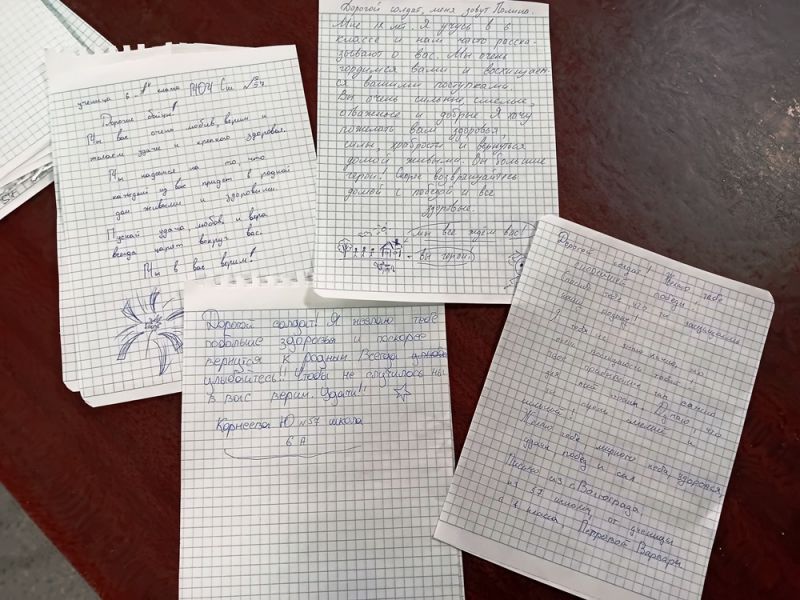 ученица 6 "А" класса МОУ Сш №57
Дорогие бойцы!
Мы вас очень любим, верим и
желаем удачи и крепкого здоровья.
Мы надеемся на то, что
каждый из вас придет в родной
дом живыми и здоровыми.
Пускай удача любовь и вера
всегда царят вокруг вас.
Мы в вас верим!
Дорогой солдат, меня зовут Полина.
Мне 12 лет. Я учусь в 6
классе и нам часто расска-
зывают о вас. Мы очень
гордимся вами и восхищаем-
ся вашими поступками
Вы очень сильные, смелые,
отважные и добрые Я хочу
пожелать вам здоровья,
силы, храбрости и вернуться
домой живыми. Вы большие
герои! Скорее возвращайтесь
домой с победой и все
здоровые.
Мы все ждём вас!
вы герои.
Дорогой солдат! Я желаю тебе
побольше здоровья и поскорее
вернутся к родным Всегда
улыбайтесь!! Чтобы не случилось мы
в вас верим. Удачи!!
Корнеева Ю №57 школа
6 А
Дорогой солдат! Желаю тебе
скорейшей победы!
Спасибо тебе что ты защищаешь
нашу родину!
для всей страны. Думаю что
ты очень смелый и
сильный!
Желаю тебе мирного неба, здоровья,
удачи побед и сил
Письмо из г.Волгограда
из 57 школы, от ученицы
класса, Петровой Варвары